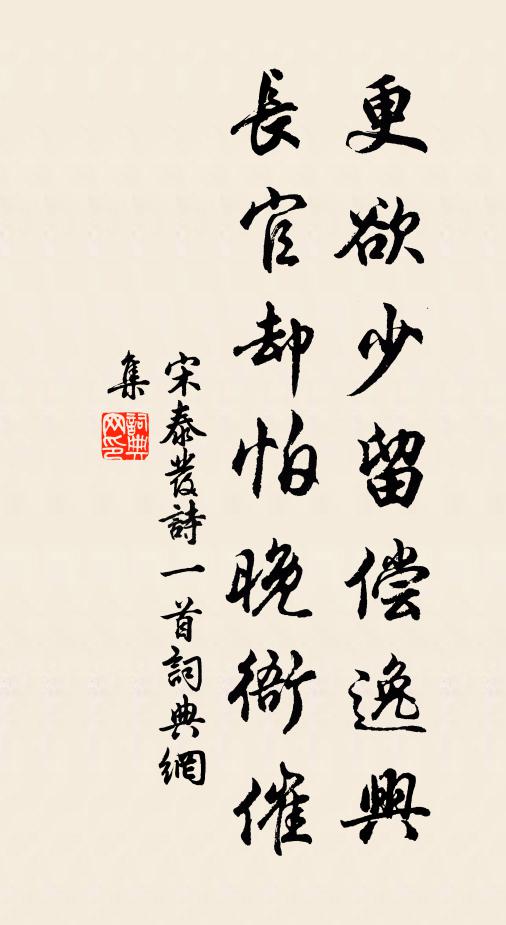 更欲少留偿逸興
長官却怕晚衙催
宋泰發詩一首詞典網
集
詞典
网印